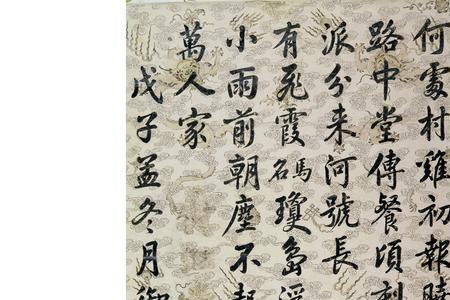 何處村雞初報曉
路中堂傳餐頃刻
派分来河號長
有飛霞馬名瓊島浮
小雨前朝塵不起
萬人家
戊子孟冬月御